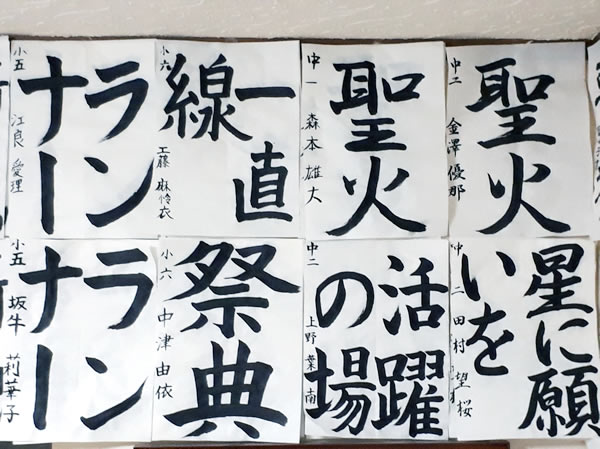 聖火
中二 金澤優那
聖火
中一 森本雄大
一直
線
小六 工藤麻怜衣
ラン
ナー
小五 江良愛理
星に願
いを
中二 田村望桜
活躍
の場
中二 上野葉南
祭典
小六 中津由依
ラン
ナー
小五 坂牛莉華子